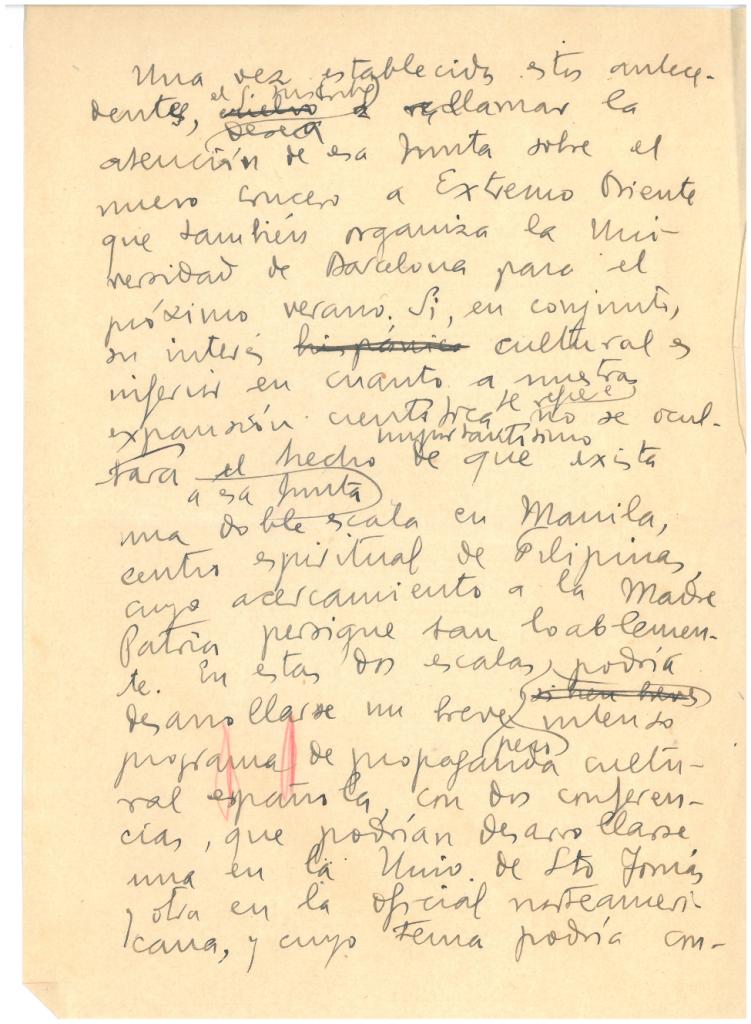 Una vez establecidos estos antece-
el Instituto
dentes, desea llamar la
atención de esa Junta sobre el
nuevo crucero a Extremo Oriente
que también organiza la Uni-
versidad de Barcelona para el
próximo verano. Si, en conjunto,
su interés hispánico cultural es
inferior en cuanto a nuestra
se refiere
expansión científica no se ocul-
importantísimo
tará el hecho de que exista
a esa Junta
una doble escala en Manila,
centro espiritual de Filipinas,
cuyo acercamiento a la Madre
Patria persigue tan loablemen-
te. En estas dos escalas, podría
si bien breve
desarrollarse un breve intenso
pero
programa de propaganda cultu-
ral española, con dos conferen-
cias, que podrían desarrollarse
una en la Univ. de Sto Tomás
y otra en la oficial norteameri-
cana, y cuyo tema podría con-